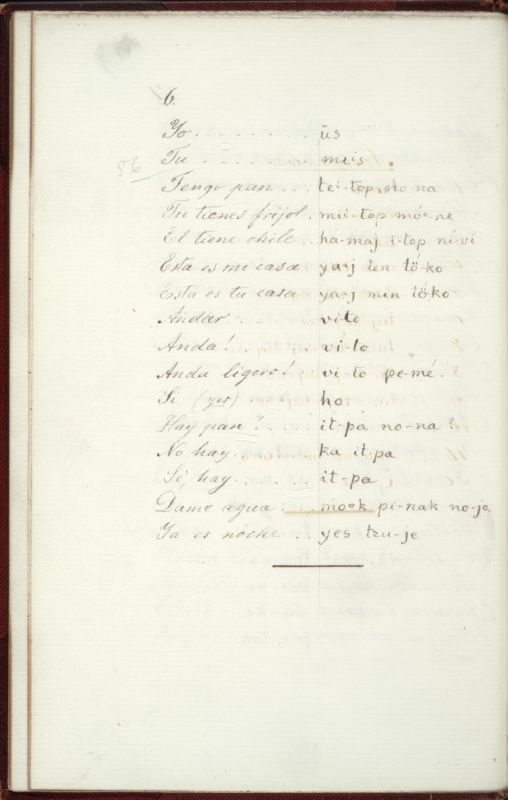 6.
Yo . . . . . . . . üs
Tu . . . . . . . miis.
56
Tengo pan . . . tei-top no-na
Tu tienes frijol . mii-top móo-ne
El tiene chile . . ha-maj i-top ní-vi
Esta es mi casa ya-j ten tö́-ko
Ersta es tu casa ya-j min tö́-ko
Andar . . . . . ví-to
Anda! . . . . . ví-to
Anda ligero! ví to pe-mé.
Si (yes) . . . ho
Hay pan? . . . it-pa no-na?
No hay . . . . . ka it-pa
Sí, hay . . . . . it-pa
Dame agua . . . mook pi-nak no-jo
Ya es noche . . yes tzu-je